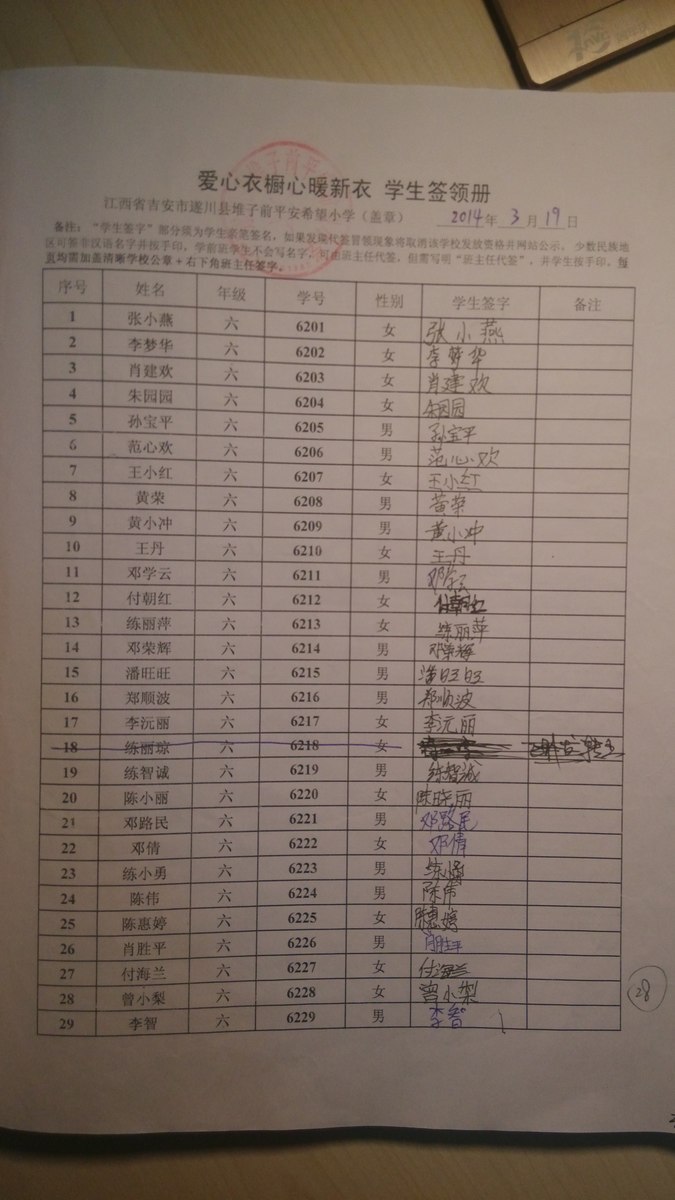 爱心衣橱心暖新衣 学生签领册
江西省吉安市遂川县堆子前平安希望小学（盖章） 2014年 3月 19日
备注："学生签字"部分须为学生亲笔签名，如果发现代签冒领现象将取消该学校发放资格并网站公示，少数民族地
区可签非汉语名字并按手印，学前班学生不会写名字，可由班主任代签，但需写明"班主任代签"，并学生按手印，每
页均需加盖清晰学校公章+右下角班主任签字。
序号 姓名 年级 学号 性别 学生签字 备注
1 张小燕 六 6201 女 张小燕
2 李梦华 六 6202 女 李梦华
3 肖建欢 六 6203 女 肖建欢
4 朱园园 六 6204 女 朱园园
5 孙宝平 六 6205 男 孙宝平
6 范心欢 六 6206 男 范心欢
7 王小红 六 6207 女 王小红
8 黄荣 六 6208 男 黄荣
9 黄小冲 六 6209 男 黄小冲
10 王丹 六 6210 女 王丹
11 邓学云 六 6211 男 邓学云
12 付朝红 六 6212 女 付朝红
13 练丽萍 六 6213 女 练丽萍
14 邓荣辉 六 6214 男 邓荣辉
15 潘旺旺 六 6215 男 潘旺旺
16 郑顺波 六 6216 男 郑顺波
17 李沅丽 六 6217 女 李元丽
18 练丽琼 六 6218 女
19 练智诚 六 6219 男 练智诚
20 陈小丽 六 6220 女 陈晓丽
21 邓路民 六 6221 男 邓路民
22 邓倩 六 6222 女 邓倩
23 练小勇 六 6223 男
24 陈伟 六 6224 男 陈伟
25 陈惠婷 六 6225 女 陈惠婷
26 肖胜平 六 6226 男 肖胜平
27 付海兰 六 6227 女 付海兰
28 曾小梨 六 6228 女 曾小梨
29 李智 六 6229 男 李智
28